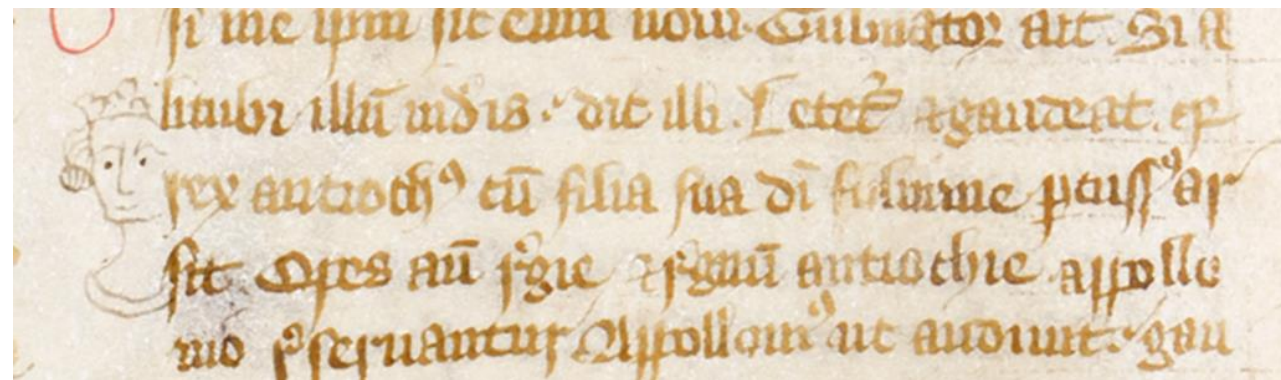 si me ipm sit eum noui. Gubnator ait. Si a
licubi illū uidis. dic illi. Letet᷑ ⁊ gaudeat. q̇
rex antiochꝰ cū filia sua dī fulmine ꝑcussꝰ ar
sit. Opes aū regie ⁊ regnū antiochie appollo
nio reseruantur. Appollonius ut audiuit. gau